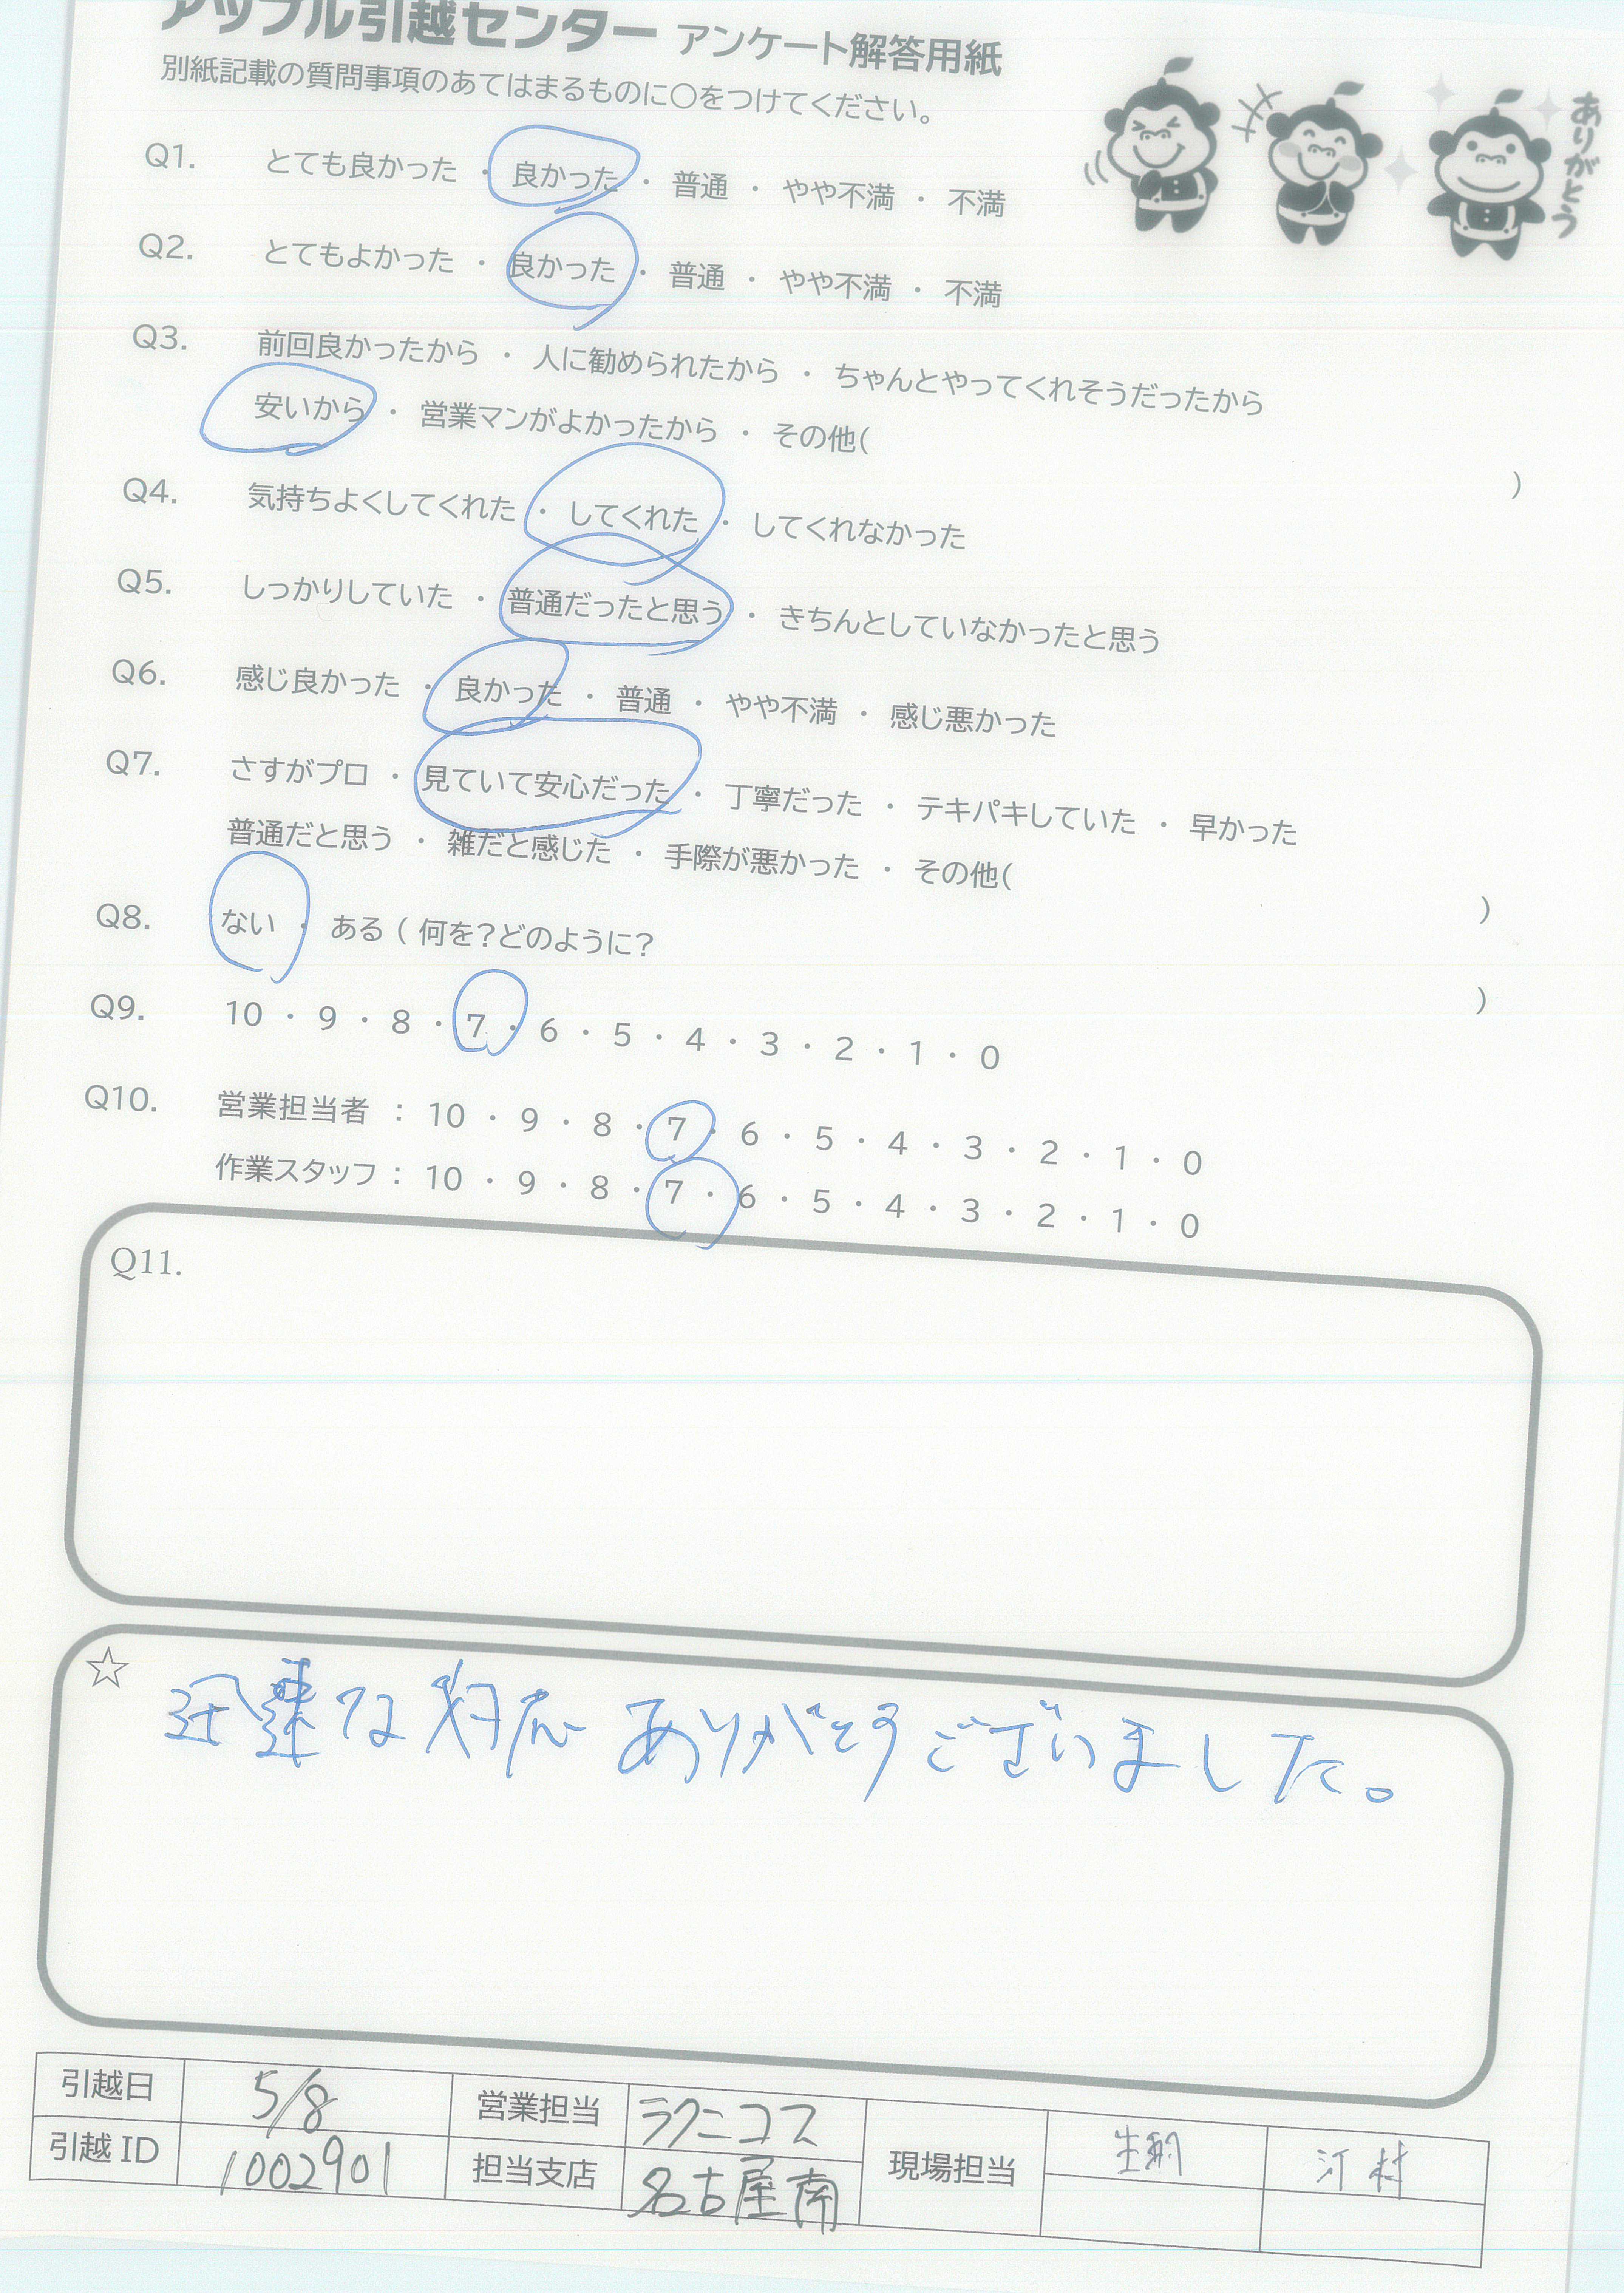 アップル引越センター アンケート解答用紙
別紙記載の質問事項のあてはまるものに○をつけてください。
ありがとう
Q1. とても良かった ・ 良かった ・ 普通 ・ やや不満 ・ 不満
Q2. とてもよかった ・ 良かった ・ 普通 ・ やや不満 ・ 不満
Q3. 前回良かったから ・ 人に勧められたから ・ ちゃんとやってくれそうだったから
安いから ・ 営業マンがよかったから ・ その他( )
Q4. 気持ちよくしてくれた ・ してくれた ・ してくれなかった
Q5. しっかりしていた ・ 普通だったと思う ・ きちんとしていなかったと思う
Q6. 感じ良かった ・ 良かった ・ 普通 ・ やや不満 ・ 感じ悪かった
Q7. さすがプロ ・ 見ていて安心だった ・ 丁寧だった ・ テキパキしていた ・ 早かった
普通だと思う ・ 雑だと感じた ・ 手際が悪かった ・ その他( )
Q8. ない ・ ある ( 何を?どのように? )
Q9. 10 ・ 9 ・ 8 ・ 7 ・ 6 ・ 5 ・ 4 ・ 3 ・ 2 ・ 1 ・ 0
Q10. 営業担当者 : 10 ・ 9 ・ 8 ・ 7 ・ 6 ・ 5 ・ 4 ・ 3 ・ 2 ・ 1 ・ 0
作業スタッフ : 10 ・ 9 ・ 8 ・ 7 ・ 6 ・ 5 ・ 4 ・ 3 ・ 2 ・ 1 ・ 0
Q11.
☆ 迅速な対応 ありがとうございました。
引越日 5/8 営業担当 ラクニコス 現場担当 河村
引越 ID 1002901 担当支店 名古屋南